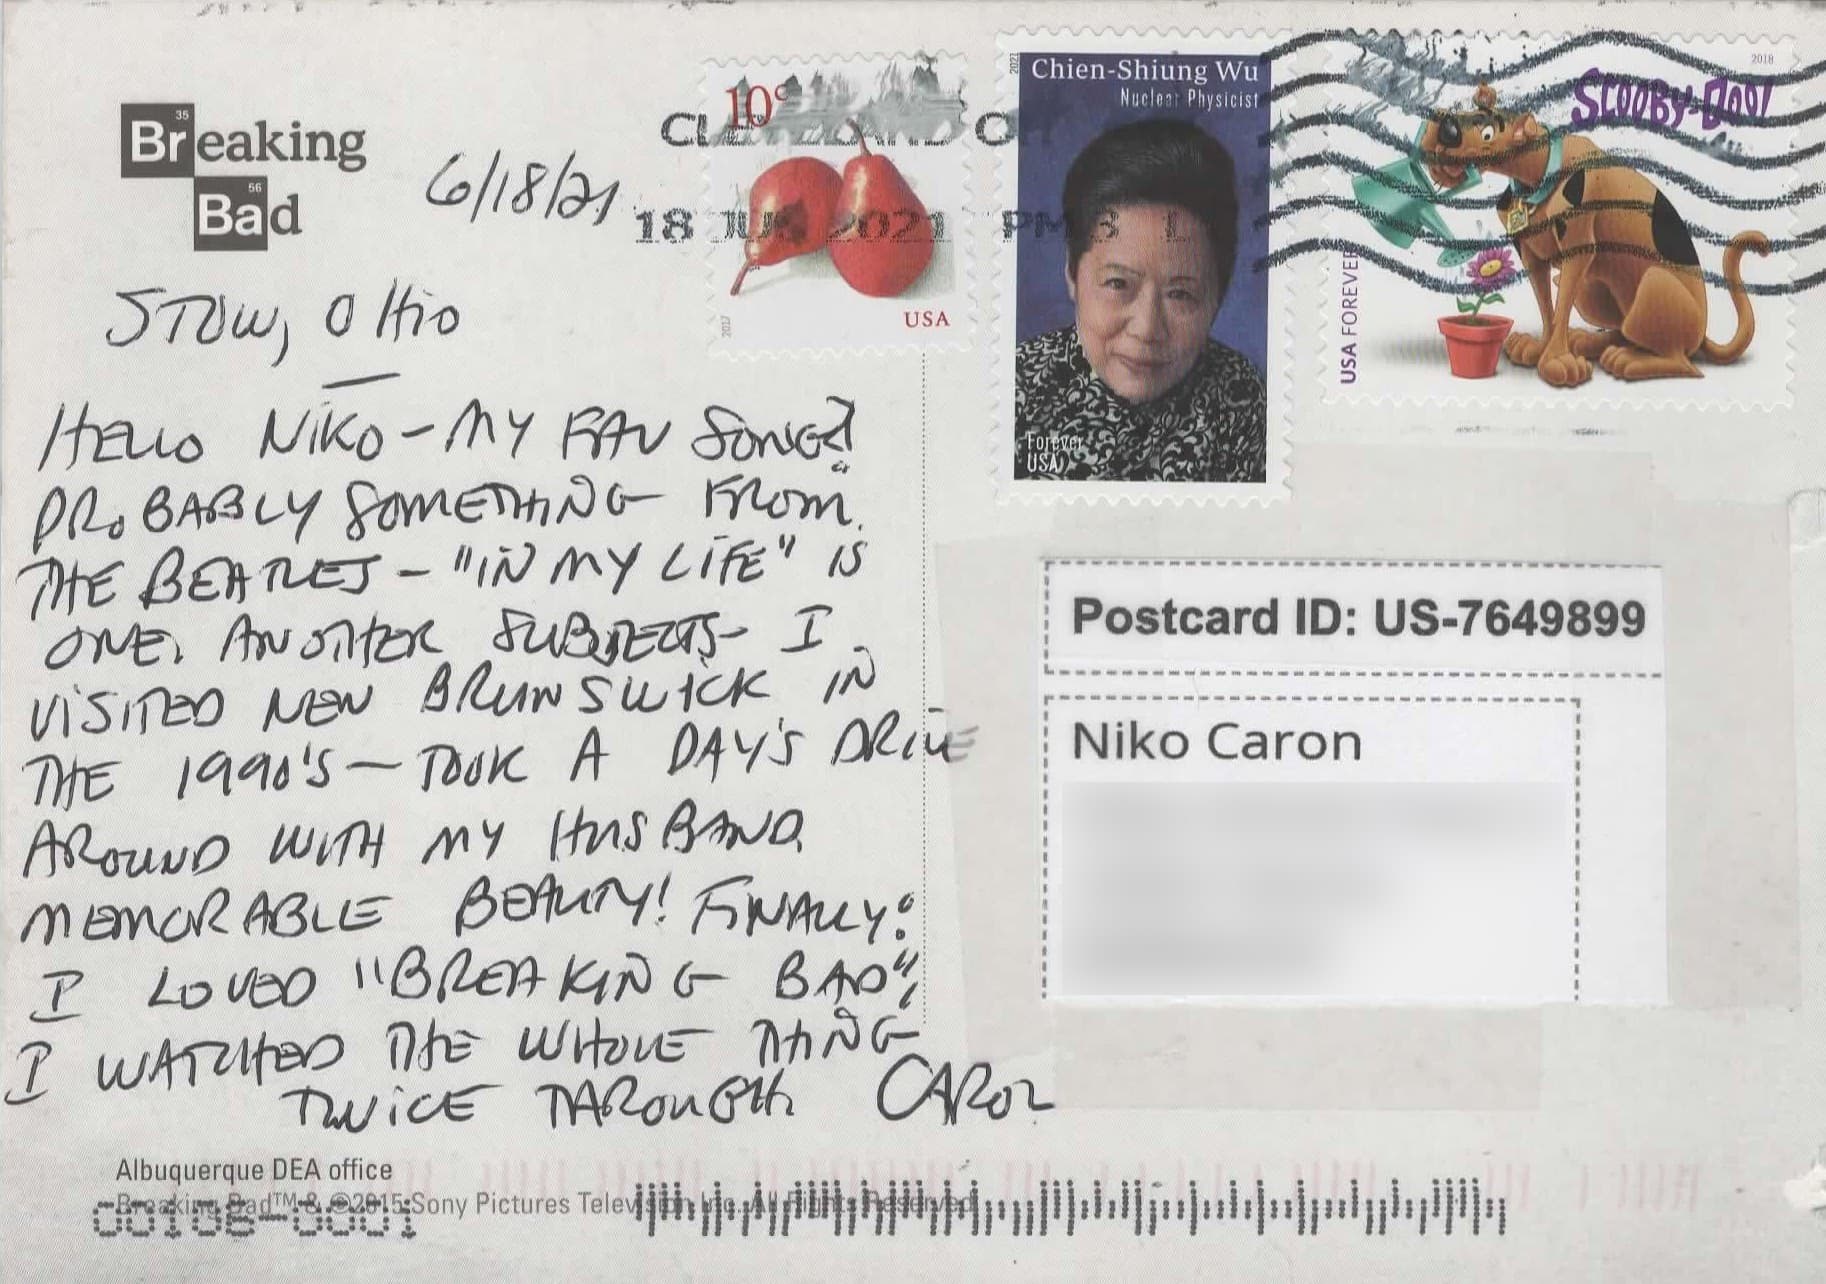 Breaking
Bad
35
56
6/18/21
10c
USA
2017
18 JUN 2021 PM 3 L
2021
Chien-Shiung Wu
Nuclear Physicist
Forever
USA
2018
SCOOBY-DOO!
USA FOREVER
STOW, OHIO
HELLO NIKO - MY FAV SONG?
PROBABLY SOMETHING FROM
THE BEATLES - "IN MY LIFE" IS
ONE. ANOTHER SUBJECTS - I
VISITED NEW BRUNSWICK IN
THE 1990'S - TOOK A DAY'S DRIVE
AROUND WITH MY HUSBAND.
MEMORABLE BEAUTY! FINALLY:
I LOVED "BREAKING BAD",
I WATCHED THE WHOLE THING
TWICE THROUGH. CAROL
Postcard ID: US-7649899
Niko Caron
Albuquerque DEA office
Breaking Bad™ & ©2015 Sony Pictures Television Inc. All Rights Reserved